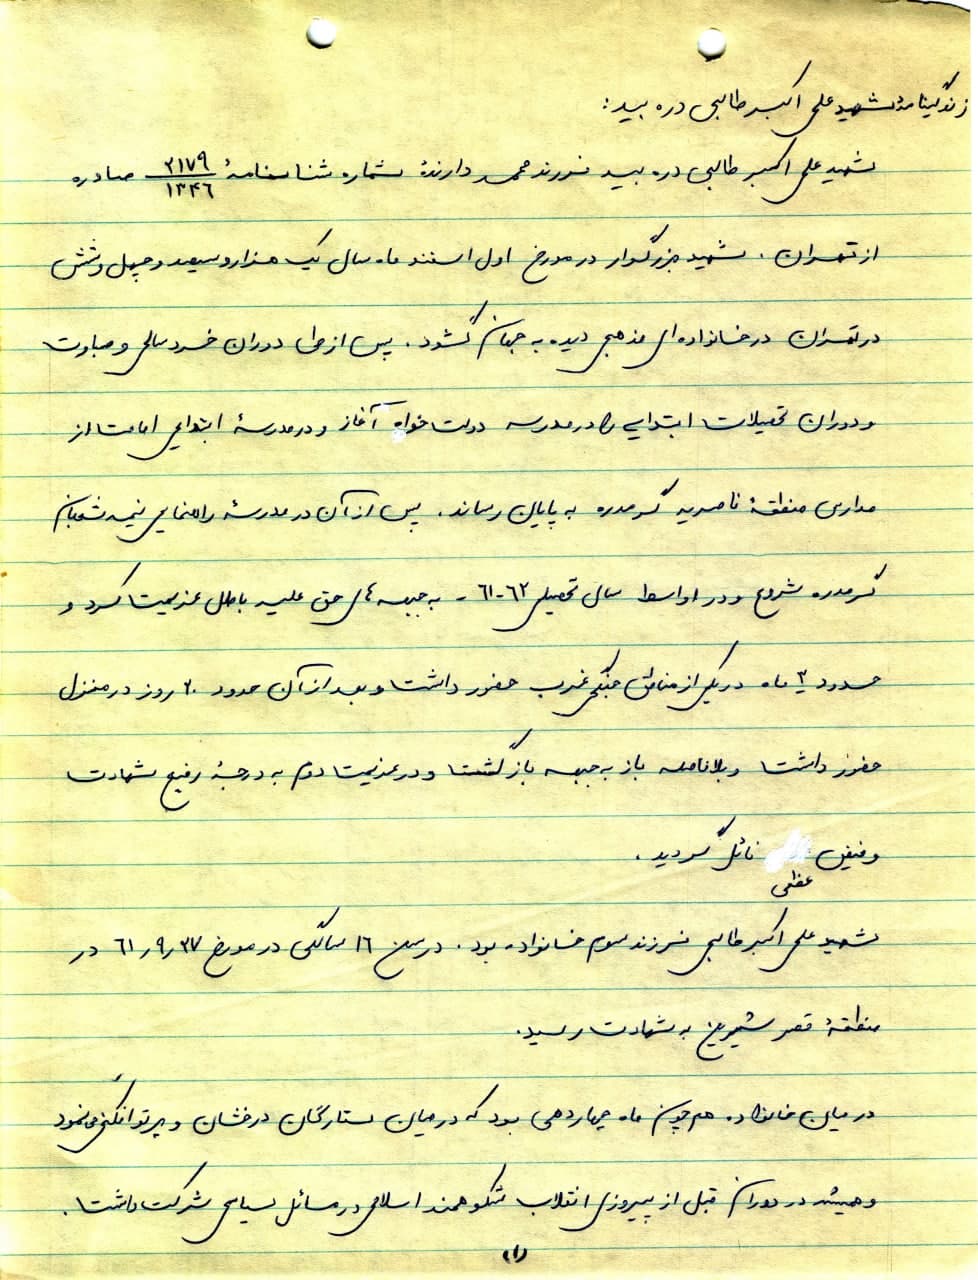 زندگینامهٔ شهید علی اکبر طالبی دره بید :
شهید علی اکبر طالبی دره بید فرزند محمد دارندهٔ شماره شناسنامهٔ ۳۱۷۹/۱۳۴۶ صادره
از تهران . شهید بزرگوار در مورخ اول اسفند ماه سال یک هزار و سیصد و چهل و شش
در تهران در خانواده ای مذهبی دیده به جهان گشود . پس از طی دوران خردسالی و صباوت
و دوران تحصیلات ابتدایی را در مدرسه دولت خواه آغاز و در مدرسهٔ ابتدایی امامت از
مدارس منطقهٔ ناصریه گرمدره به پایان رساند . پس از آن در مدرسهٔ راهنمایی نیمه شعبان
گرمدره شروع و در اواسط سال تحصیلی ۶۲-۶۱ - به جبهه های حق علیه باطل عزیمت کرد و
حدود ۳ ماه در یکی از مناطق جنگی غرب حضور داشت و بعد از آن حدود ۲۰ روز در منزل
حضور داشت و بلافاصله باز به جبهه بازگشت و در عزیمت دوم به درجهٔ رفیع شهادت
و فیض نائل گردید .
عظمی
شهید علی اکبر طالبی فرزند سوم خانواده بود . در سن ۱۶ سالگی در مورخ ۶۱/۹/۲۷ در
منطقهٔ قصر شیرین به شهادت رسید .
در میان خانواده همچون ماه چهاردهی بود که در میان ستارگان درخشان و پرتو افکنی می نمود
و همیشه در دوران قبل از پیروزی انقلاب شکوهمند اسلامی در مسائل سیاسی شرکت داشت .
(۱)